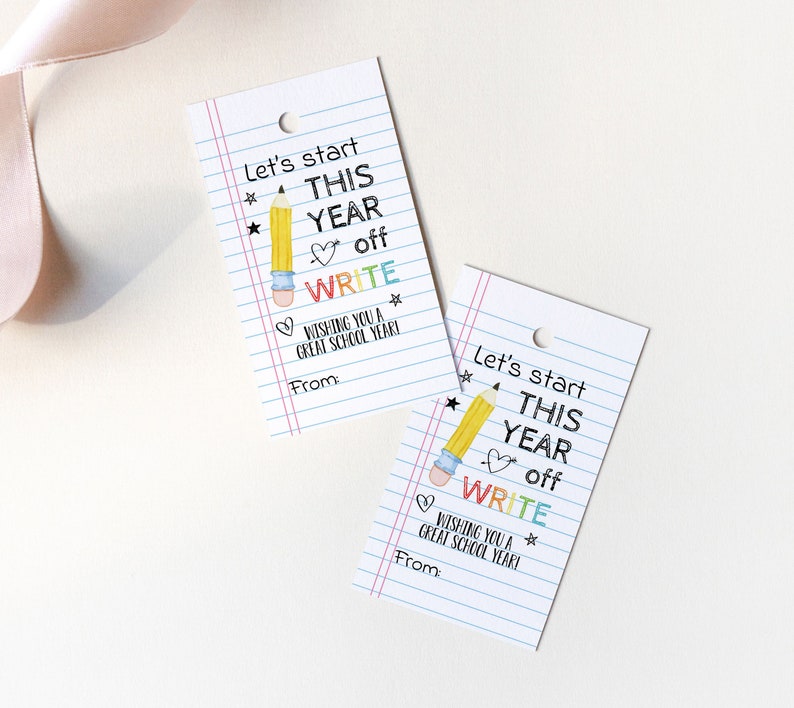 Let's start
THIS
YEAR
off
WRITE
WISHING YOU A
GREAT SCHOOL YEAR!
From:
Let's start
THIS
YEAR
off
WRITE
WISHING YOU A
GREAT SCHOOL YEAR!
From: